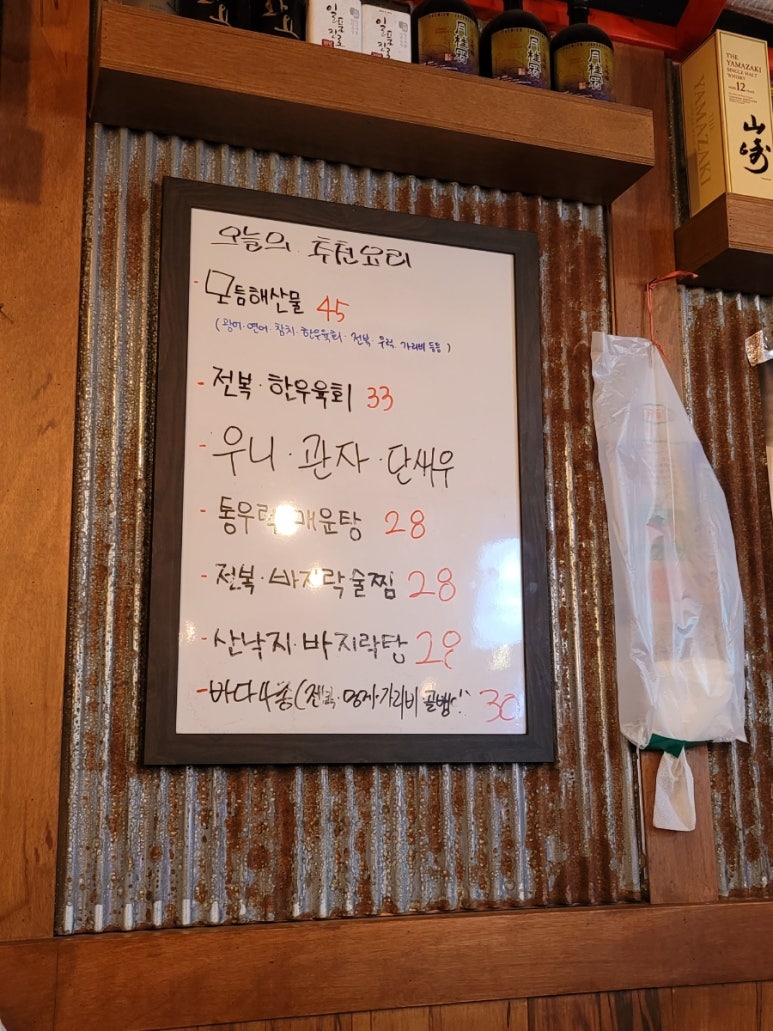 일품진로
일품진로
月桂冠
月桂冠
月桂冠
THE
YAMAZAKI
SINGLE MALT
WHISKY
12
山崎
THE YAMAZAKI
오늘의 추천요리
- 모듬해산물 45
(광어·연어·참치·한우육회·전복·우럭·가리비 등등)
- 전복·한우육회 33
- 우니·관자·단새우
- 통우럭 매운탕 28
- 전복·바지락술찜 28
- 산낙지·바지락탕 28
- 바다4총(전복· 가리비 골뱅이 30